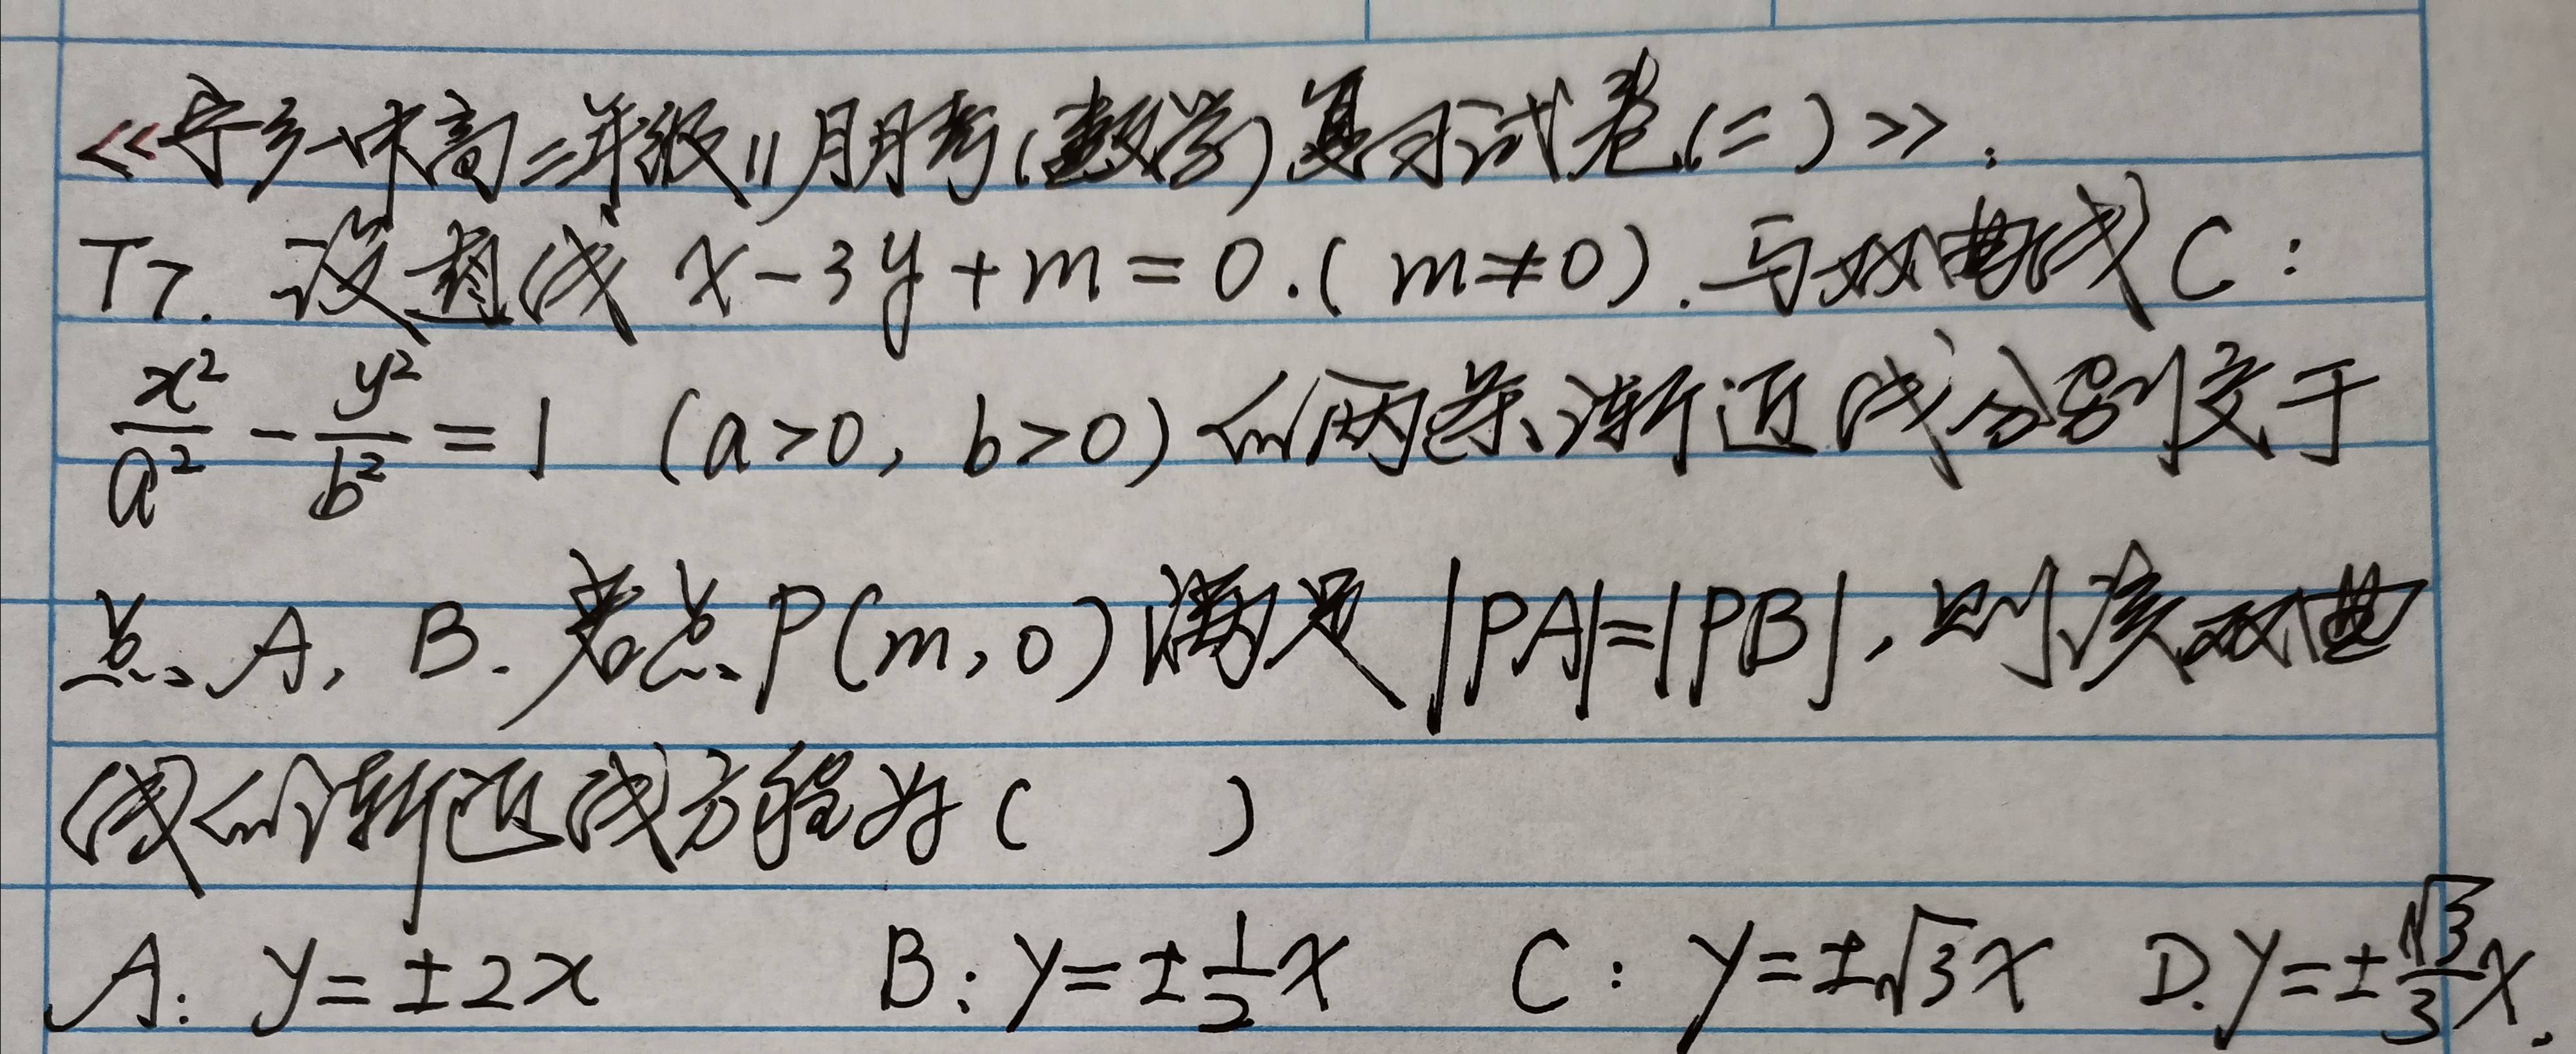 《宁乡一中高二年级11月月考(数学)复习试卷(二)》:
T7. 设直线 x-3y+m=0.(m≠0).与双曲线C:
x²/a² - y²/b² = 1 (a>0, b>0)的两条渐近线分别交于
点A, B. 若点P(m,0)满足|PA|=|PB|,则该双曲
线的渐近线方程为( )
A: y=±2x B: y=±1/2x C: y=±√3x D. y=±√3/3x.